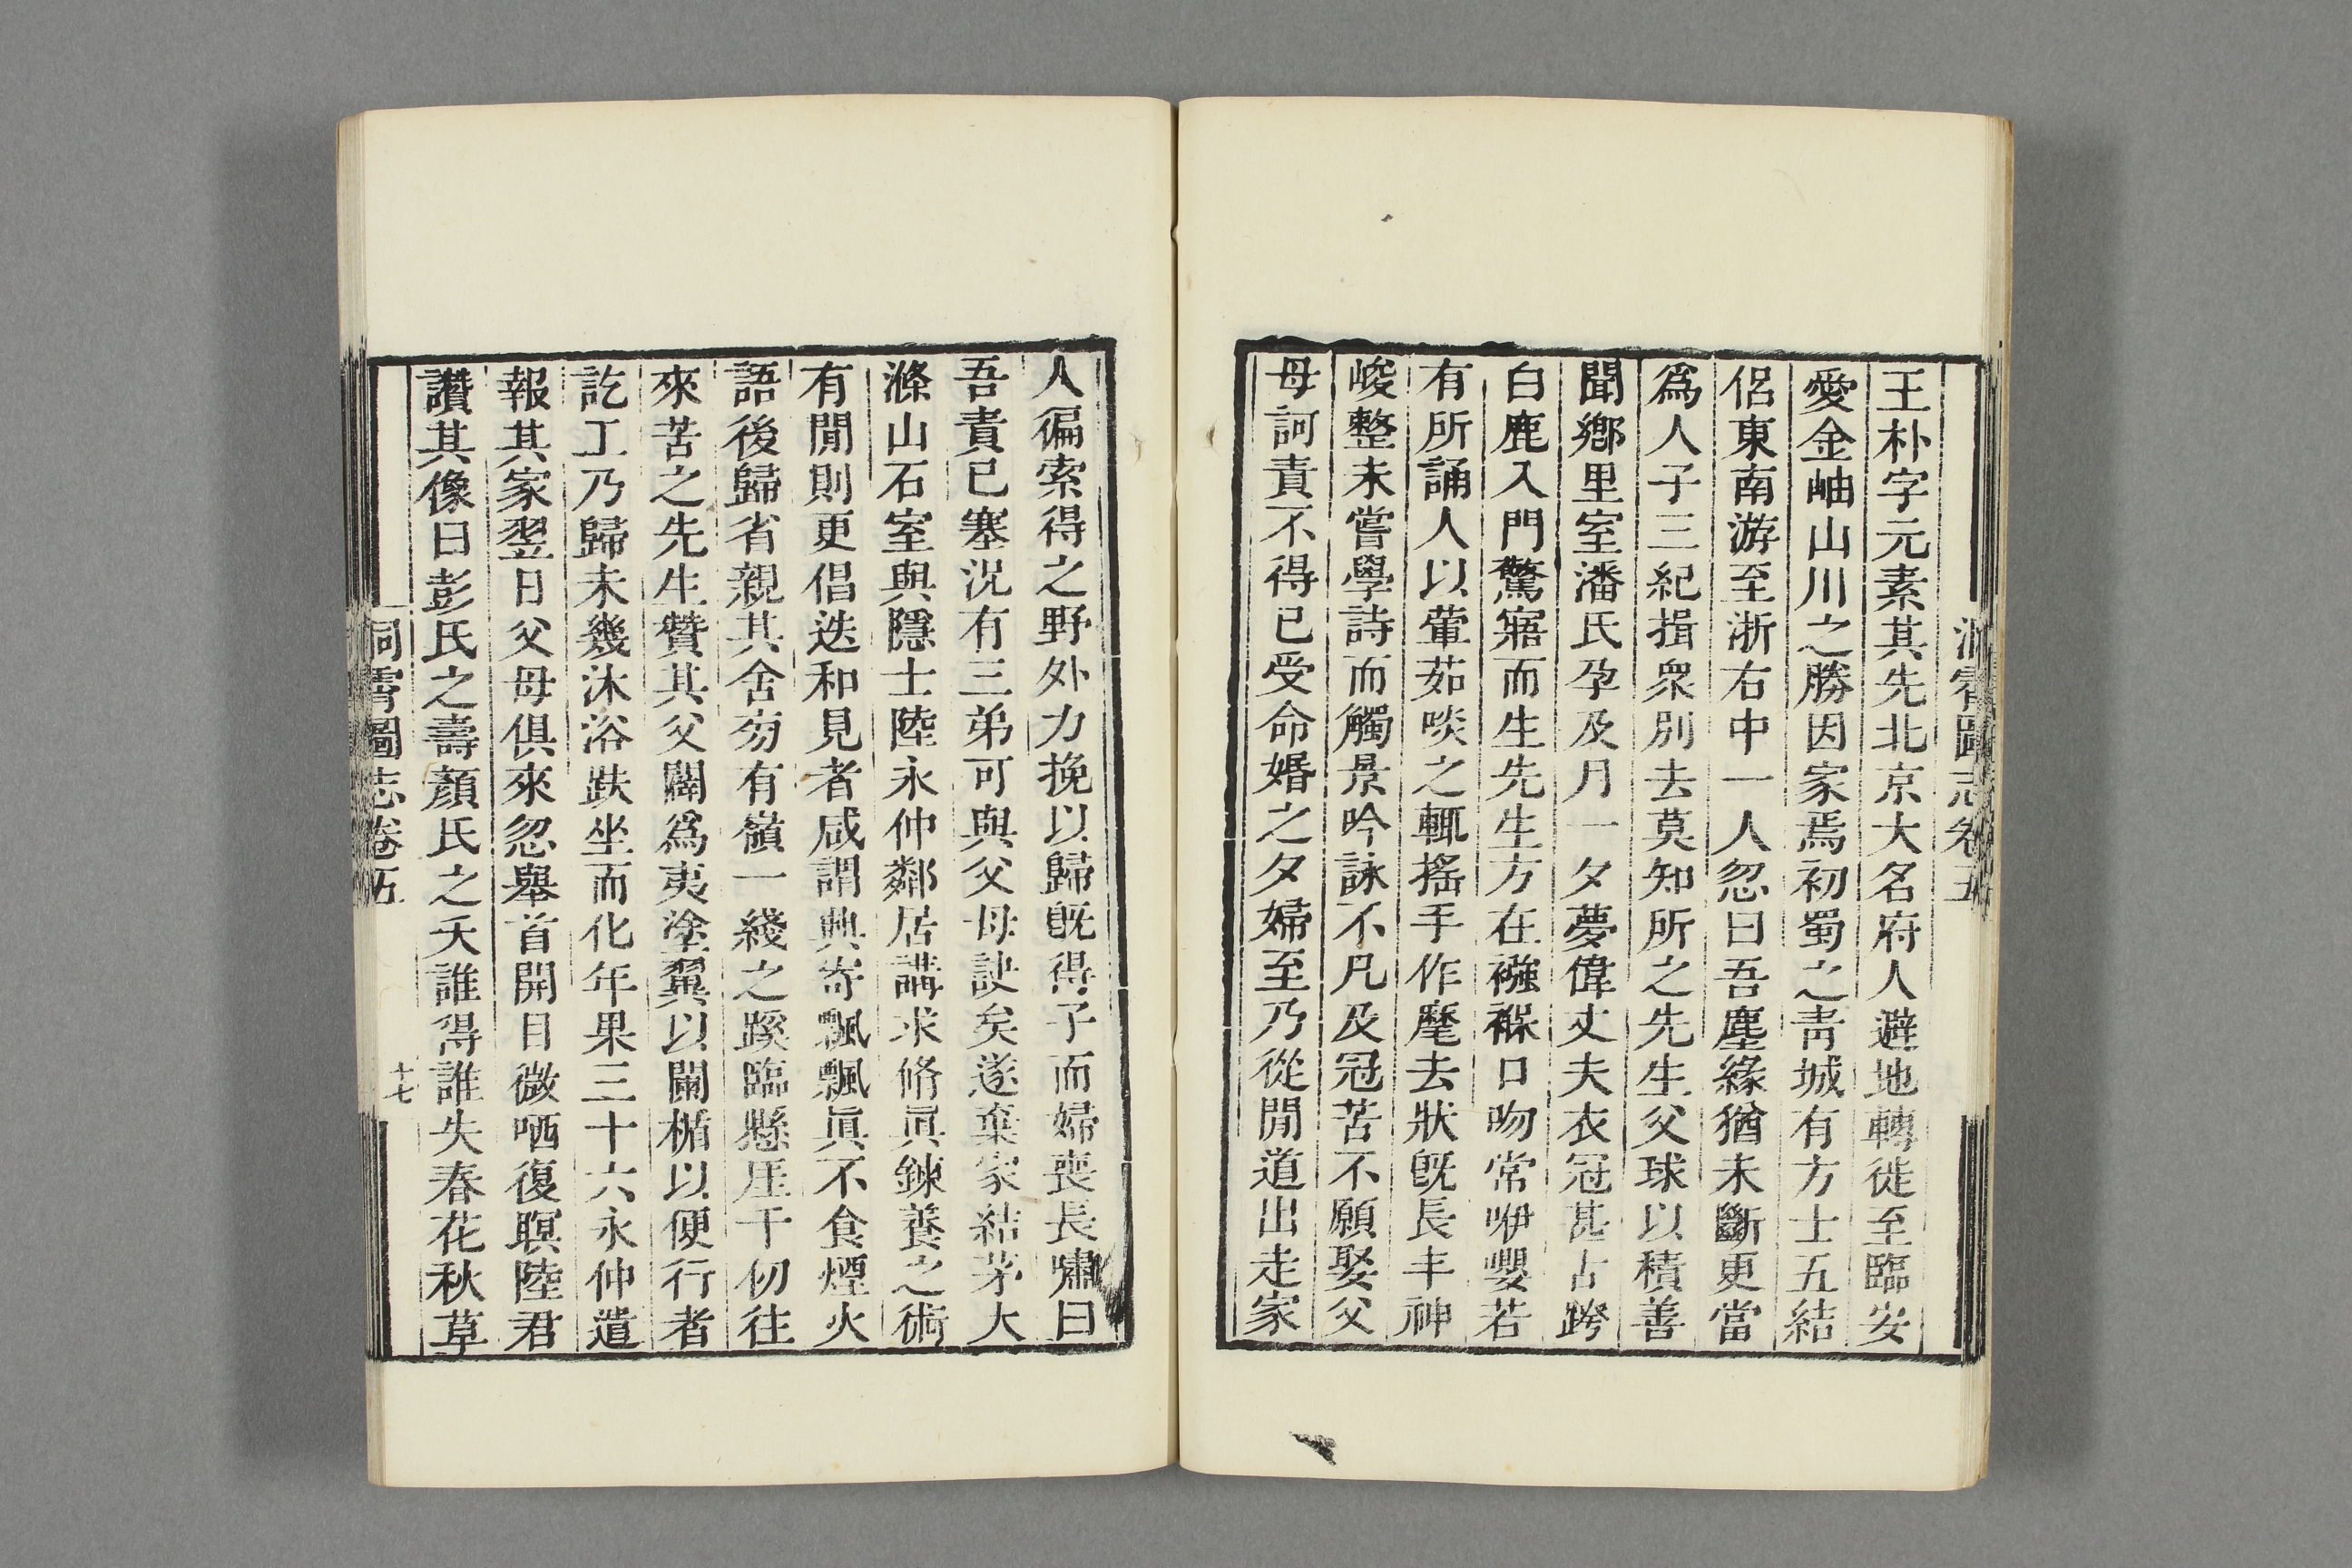 洞霄圖志卷五
王朴字元素其先北京大名府人避地轉徙至臨安
愛金岫山川之勝因家焉初蜀之靑城有方士五結
侶東南游至浙右中一人忽曰吾塵緣猶未斷更當
爲人子三紀揖衆別去莫知所之先生父球以積善
聞鄉里室潘氏孕及月一夕夢偉丈夫衣冠甚古跨
白鹿入門驚寤而生先生方在襁褓口吻常咿嚶若
有所誦人以葷茹啖之輒搖手作麾去狀旣長丰神
峻整未嘗學詩而觸景吟詠不凡及冠苦不願娶父
母訶責不得已受命婚之夕婦至乃從閒道出走家
人徧索得之野外力挽以歸旣得子而婦喪長嘯曰
吾責已塞況有三弟可與父母訣矣遂棄家結茅大
滌山石室與隱士陸永仲鄰居講求脩眞鍊養之術
有閒則更倡迭和見者咸謂興寄飄飄眞不食煙火
語後歸省親其舍旁有嶺一綫之蹊臨懸厓千仞往
來苦之先生贊其父闢爲夷塗翼以闌楯以便行者
訖工乃歸未幾沐浴趺坐而化年果三十六永仲遣
報其家翌日父母俱來忽舉首開目微哂復瞑陸君
讚其像曰彭氏之壽顏氏之夭誰得誰失春花秋草
洞霄圖志卷五
十七